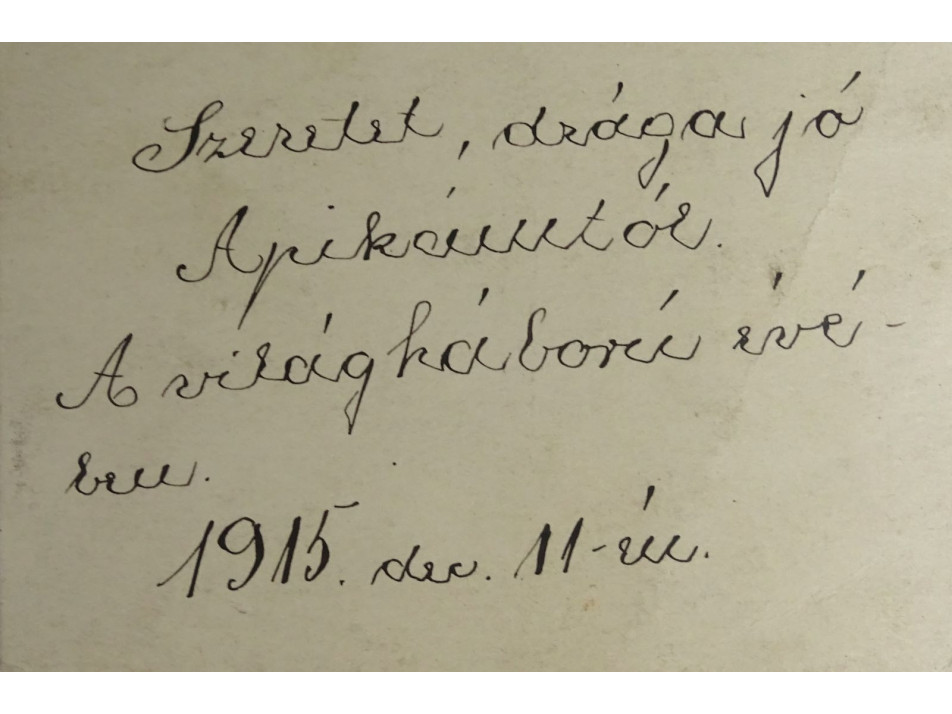 Szeretet, drága jó
Apikámtól.
A világháború évé-
ben.
1915. dec. 11-én.